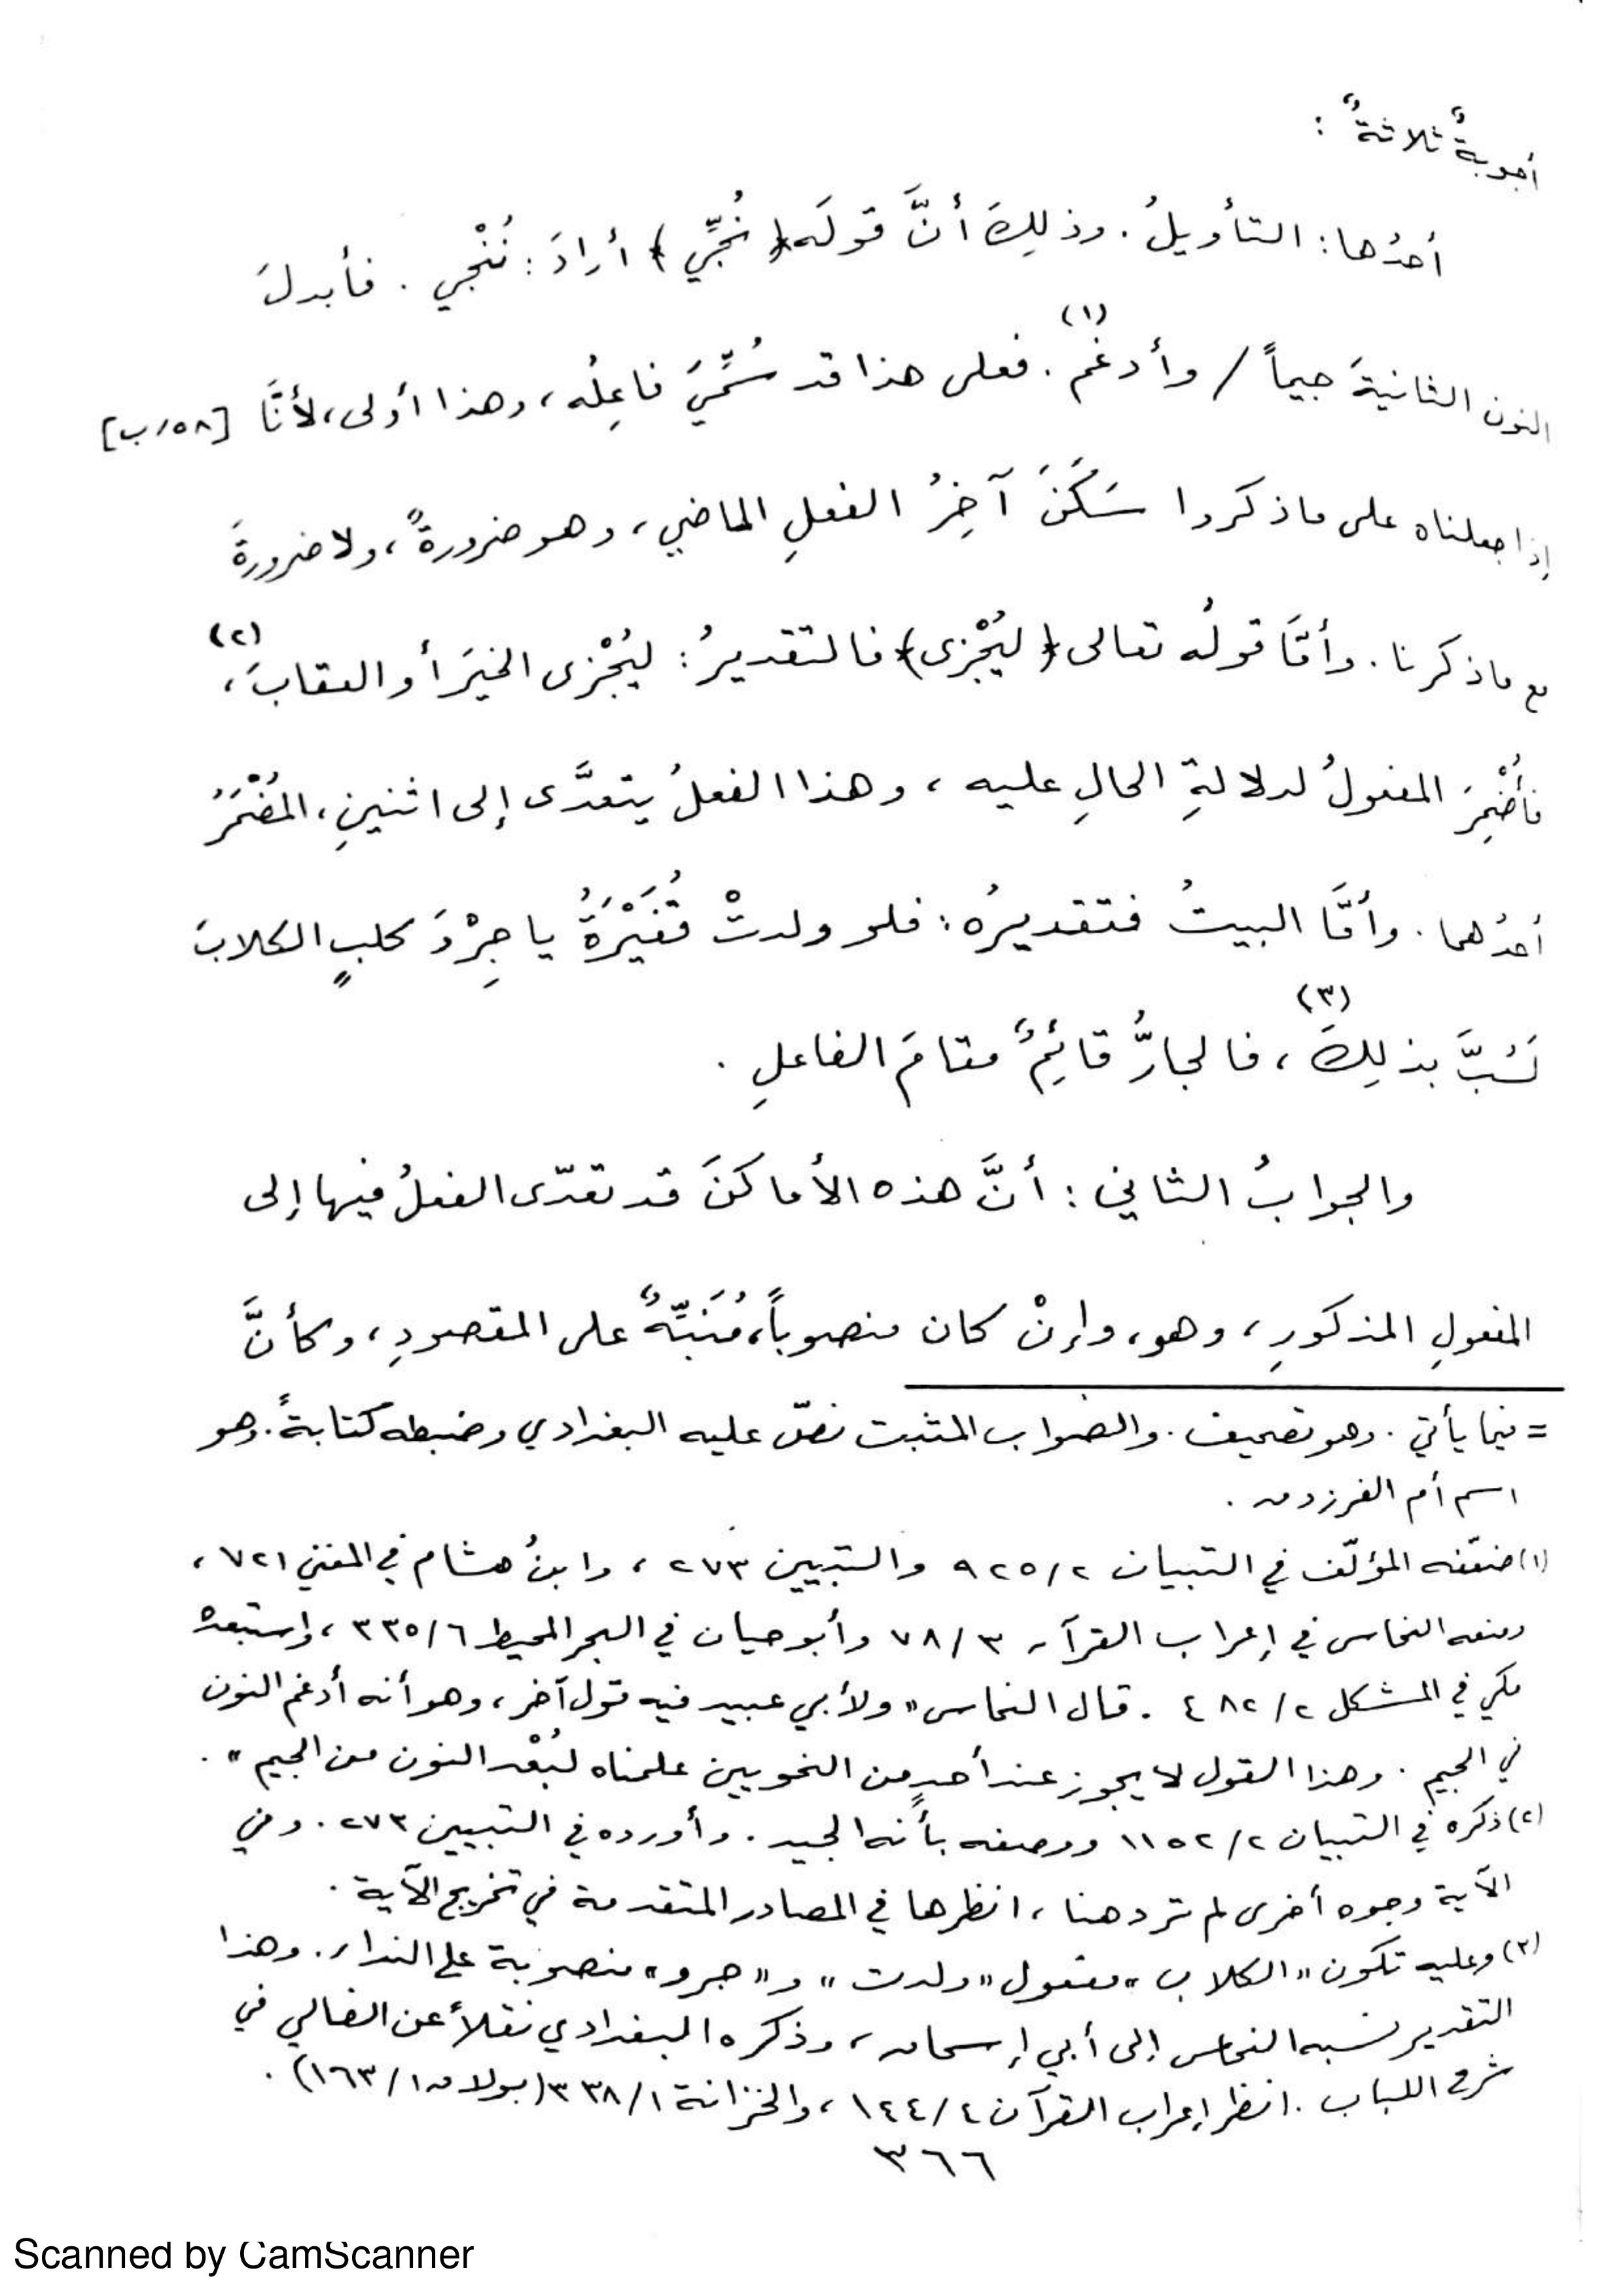 أجوبةٌ ثلاثةٌ :
أحدُها : التأويلُ . وذلِكَ أنَّ قولَه ﴿ نُجِّي ﴾ أرادَ : نُنْجي . فأبدلَ
النون الثانيةَ جيماً / وأدغم (١) . فعلى هذا قد سُمِّيَ فاعِلُه ، وهذا أولى ، لأنَّا [٥٨/ب]
إذا جعلناه على ما ذكروا سَكَّنَ آخِرُ الفعلِ الماضي ، وهو ضرورةٌ ، ولا ضرورةَ
مع ما ذكرنا . وأمَّا قولُه تعالى ﴿ ليُجْزى ﴾ فالتقديرُ : ليُجْزى الخيرَ أو العقابَ (٢) ،
فأُضْمِرَ المفعولُ لدلالةِ الحالِ عليه ، وهذا الفعلُ يتعدَّى إلى اثنينِ ، المُضْمَرُ
أحدُهما . وأمَّا البيتُ فتقديرُه : فلو ولدتْ قُفَيْرَةُ يا جِرْوَ كلبٍ الكلابَ
لَسُبَّ بذلِكَ (٣) ، فالجارُّ قائِمٌ مقامَ الفاعلِ .
والجوابُ الثاني : أنَّ هذه الأماكنَ قد تعدّى الفعلُ فيها إلى
المفعولِ المذكورِ ، وهو ، وإنْ كان منصوباً ، مُنَبِّهٌ على المقصودِ ، وكأنَّ
= فيما يأتي . وهو تصحيف . والصواب المثبت نصّ عليه البغدادي وضبطه كتابةً . وهو
اسم أم الفرزدق .
(١) ضعّفه المؤلّف في التبيان ٩٢٥/٢ والتبيين ٢٧٣ ، وابنُ هشام في المغني ٧٢١ ،
ومنعه النحاس في إعراب القرآن ٧٨/٣ وأبو حيان في البحر المحيط ٣٣٥/٦ ، واستبعده
مكي في المشكل ٤٨٢/٢ . قال النحاس « ولأبي عبيد فيه قول آخر ، وهو أنه أدغم النون
في الجيم . وهذا القول لا يجوز عند أحدٍ من النحويين علمناه لبُعْد النون من الجيم » .
(٢) ذكره في التبيان ١١٥٢/٢ ووصفه بأنه الجيد . وأورده في التبيين ٢٧٣ . وفي
الآية وجوه أخرى لم ترد هنا ، انظرها في المصادر المتقدمة في تخريج الآية .
(٣) وعليه تكون « الكلاب » مفعول « ولدت » و « جرو » منصوبة على النداء . وهذا
التقدير نسبه النحاس إلى أبي إسحاق ، وذكره البغدادي نقلاً عن الفالي في
شرح اللباب . انظر إعراب القرآن ١٤٤/٤ ، والخزانة ٣٣٨/١ (بولاق ١٦٣/١) .
٣٦٦
Scanned by CamScanner